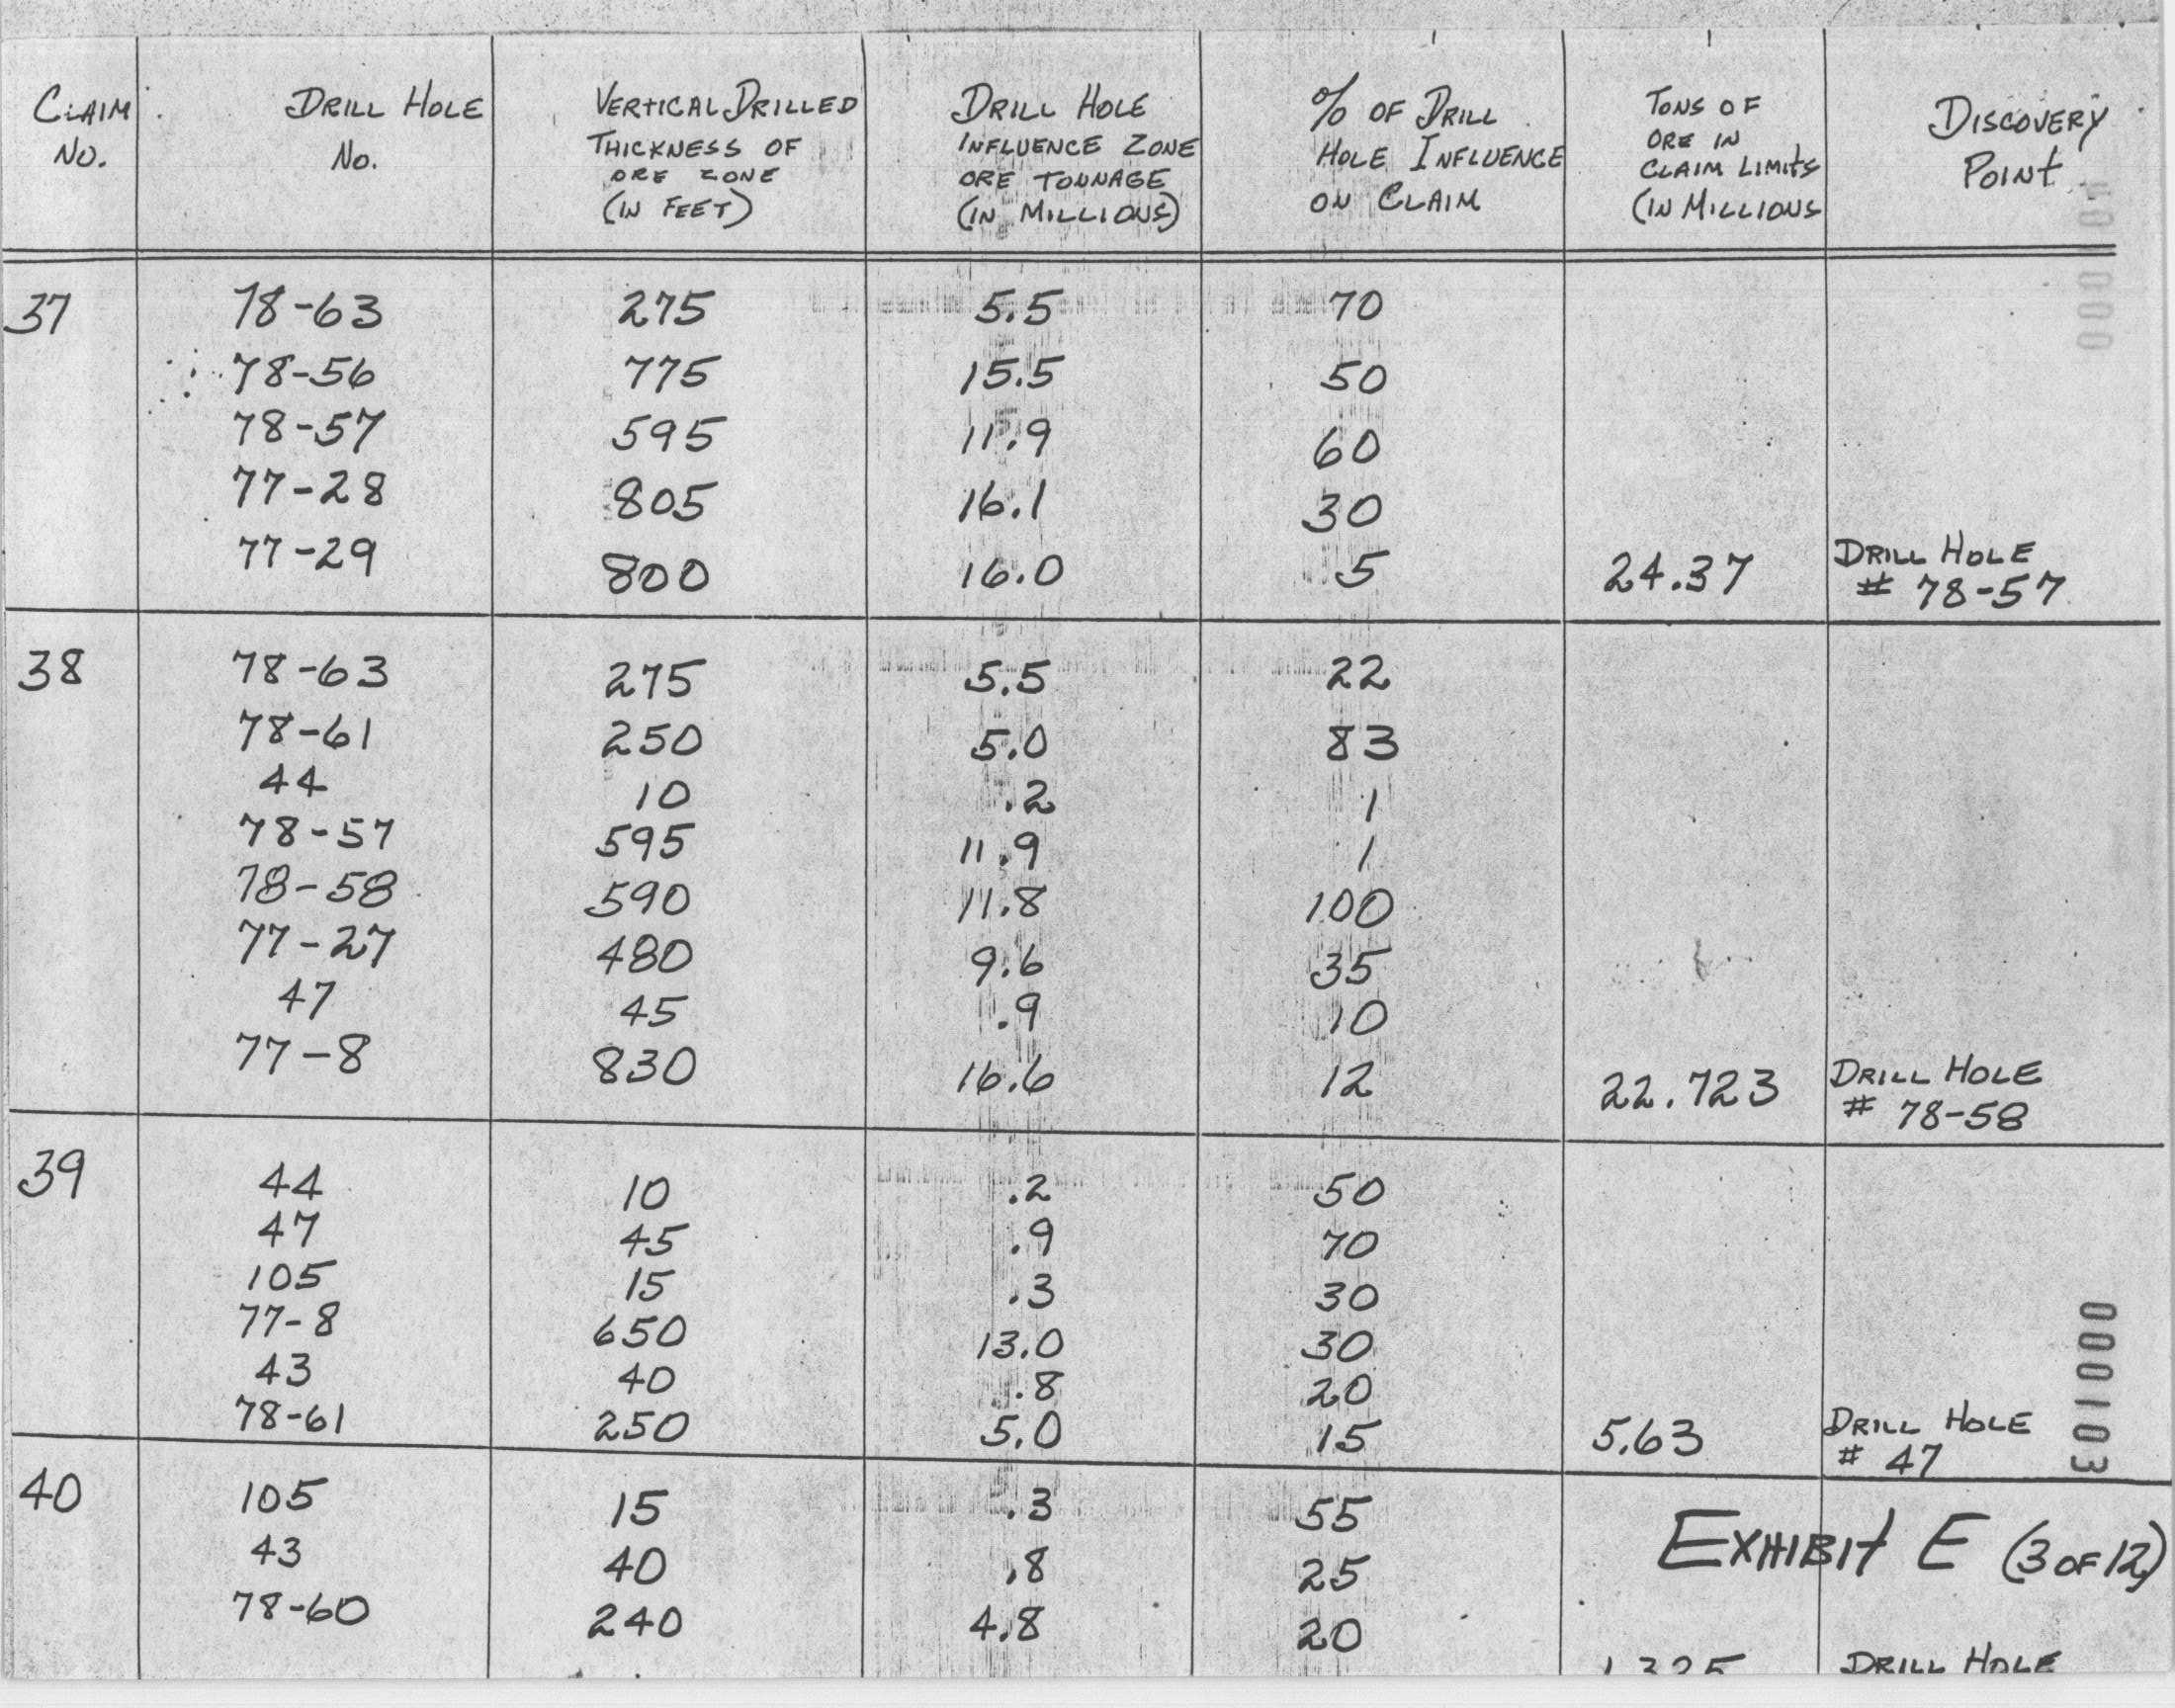 CLAIM NO. DRILL HOLE NO. VERTICAL DRILLED THICKNESS OF ORE ZONE (IN FEET) DRILL HOLE INFLUENCE ZONE ORE TONNAGE (IN MILLIONS) % OF DRILL HOLE INFLUENCE ON CLAIM TONS OF ORE IN CLAIM LIMITS (IN MILLIONS DISCOVERY POINT
37 78-63 275 5.5 70
78-56 775 15.5 50
78-57 595 11.9 60
77-28 805 16.1 30
77-29 800 16.0 5 24.37 DRILL HOLE # 78-57
38 78-63 275 5.5 22
78-61 250 5.0 83
44 10 .2 1
78-57 595 11.9 1
78-58 590 11.8 100
77-27 480 9.6 35
47 45 .9 10
77-8 830 16.6 12 22.723 DRILL HOLE # 78-58
39 44 10 .2 50
47 45 .9 70
105 15 .3 30
77-8 650 13.0 30
43 40 .8 20
78-61 250 5.0 15 5.63 DRILL HOLE # 47
000103
40 105 15 .3 55
43 40 .8 25
78-60 240 4.8 20
EXHIBIT E (3 OF 12)
DRILL HOLE